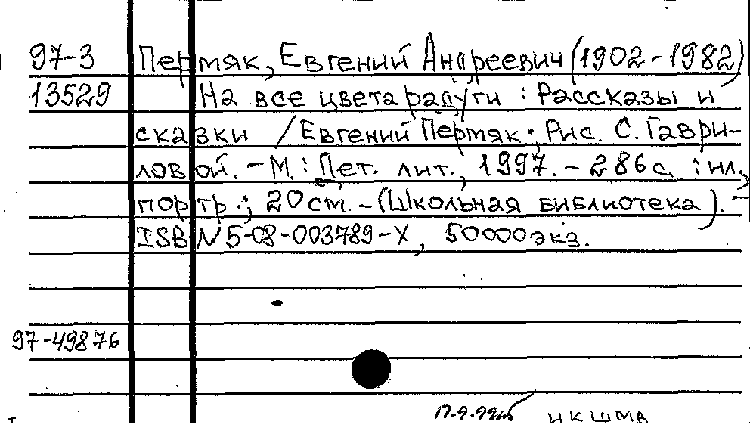 97-3 Пермяк, Евгений Андреевич (1902-1982)
13529 На все цвета радуги : Рассказы и
сказки / Евгений Пермяк; Рис. С. Гаври-
ловой. - М. : Дет. лит., 1997. - 286 с. : ил.,
портр.; 20 cm. - (Школьная библиотека). -
ISBN 5-08-003789-X, 50000 экз.
97-49876